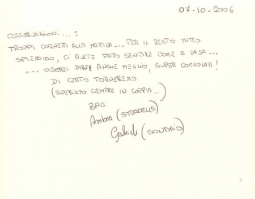 07-10-2006
OSSERVAZIONI....:
TROPPI CORNETTI ALLA MATTINA... PER IL RESTO TUTTO
SPLENDIDO, CI AVETE FATTO SENTIRE COME A CASA...
... OSEREI DIRE ANCHE MEGLIO, SUPER COCCOLATI!
DI CERTO TORNEREMO
(SPERIAMO SEMPRE IN COPPIA...)
BACI
Ambra (STORDELLA)
Gabriele (SONDRIO)